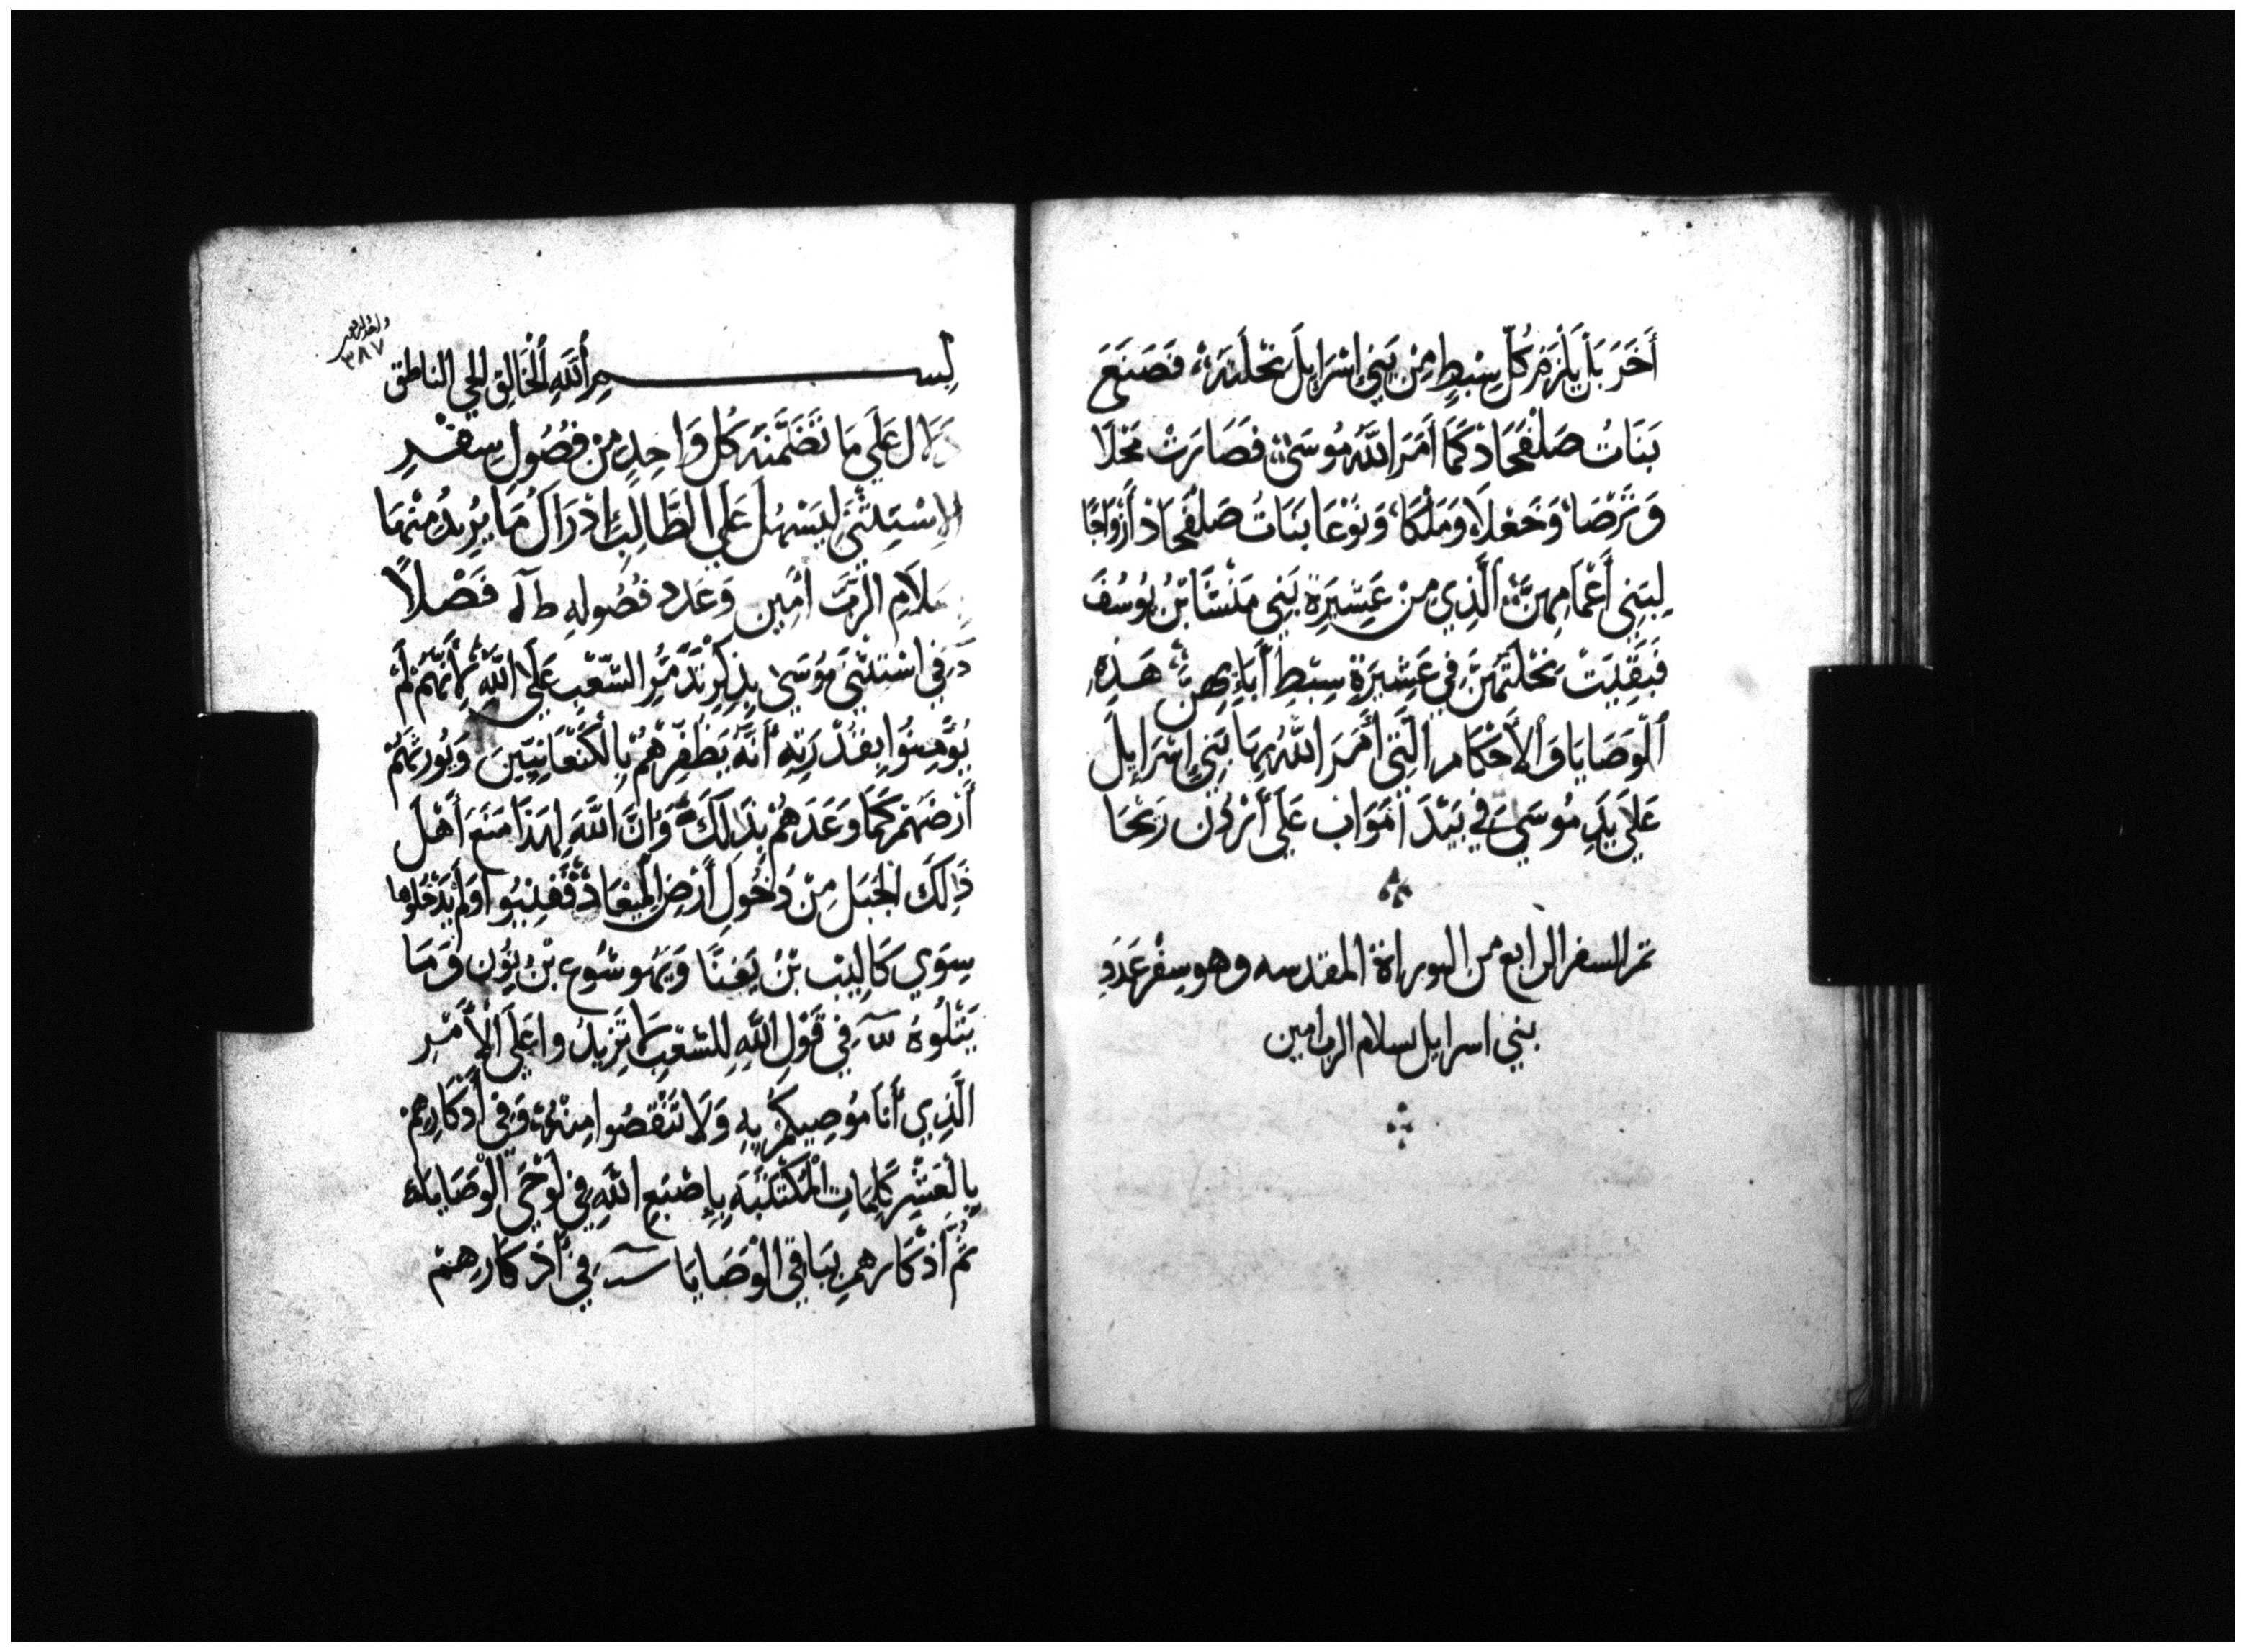 أَخَرَ بَلْ يَلْزَمُ كُلّ سِبْطٍ مِنْ بَنِي إِسْرَايِلَ نَحْلَتَهُ فَصَنَعَ
بَنَاتُ صَلْفَحَادَ كَمَا أَمَرَ اللَّهُ مُوسَى فَصَارَتْ مَحْلَا
وَتَرْصَا وَحَعْلَا وَمَلْكَا وَنَوْعَا بَنَاتُ صَلْفَحَادَ أَزْوَاجًا
لِبَنِي أَعْمَامِهِنَّ الَّذِي مِنْ عَشِيرَةِ بَنِي مَنْشَا بْنُ يُوسُفَ
فَبَقِيَتْ نَحْلَتَهُنَّ فِي عَشِيرَةِ سِبْطِ أَبَايِهِنَّ هَذِهِ
اَلْوَصَايَا وَالْأَحْكَام الَّتِي أَمَرَ اللَّهُ بِهَا بَنِي إِسْرَايِل
عَلَى يَدِ مُوسَى فِي بَيْدَ امَوَاب عَلَى أَرْدُن رَيْحَا
تم السفر الرابع من التوراة المقدسه وهو سِفْر عَدَدِ
بني اسرايل بسلام الرب امين
٣٨٧
بســـم اَللَّهِ اَلْخَالِقِ الحي الناطق
عَلَى مَا تَضَمَّنَهُ كُلّ وَاحِدٍ مِنْ فُصُولِ سِفْرِ
الاِسْتِثْنَى لِيَسْهُلَ عَلَى الطَّالِبِ ادْرَاكُ مَا يُرِيدُ مِنْهَا
بسَلَامِ الرَّبّ أمِين وَعَدد فُصُولِهِ فَصْلًا
فِي اسْتِثْنَى مُوسَى بِذِكْرِ تَذَمُّر الشَّعْبِ عَلَى اللَّهِ أَنَّهُمْ لَمْ
يُؤْمِنُوا بِقُدْرَتِهِ أَنَّهُ يَظْفِرْهُمْ بِالْكَنْعَانِيِّينَ وَيُورِثهُمْ
أَرْضَهُمْ كَمَا وَعَدَهُمْ بِذَلِكَ وَإِنَّ اللَّهَ لِهَذَا مَنَعَ أَهْلَ
ذَلِكَ الجَبَل مِنْ دُخُولِ أَرْضِ الْمِيعَادِ فَفِنِيُوا وَلَمْ يَدْخُلُوها
سِوَى كَالِيب بْنُ يَفنَّا وَيَهُوشُوع بْنُ نُون وَمَا
يَتْلُوهُ فِي قَوْلِ اللَّهِ لِلشَّعْبِ لا تَزِيدُوا عَلَى الْأَمْرِ
الَّذِي أَنَا مُوصِيكُمْ بِهِ وَلَا تَنْقصُوا مِنْهُ وَفِي أَذْكَارِهِمْ
بِالْعَشْرِ كَلِمَاتِ الْمُكْتَتَبَهِ بِإِصْبَعِ اللَّهِ فِي لَوْحَيّ الْوَصَايَا
ثُمَّ أَذْكَارهم بِبَاقِي الْوَصَايَا فِي أَذْكَارِهِمْ